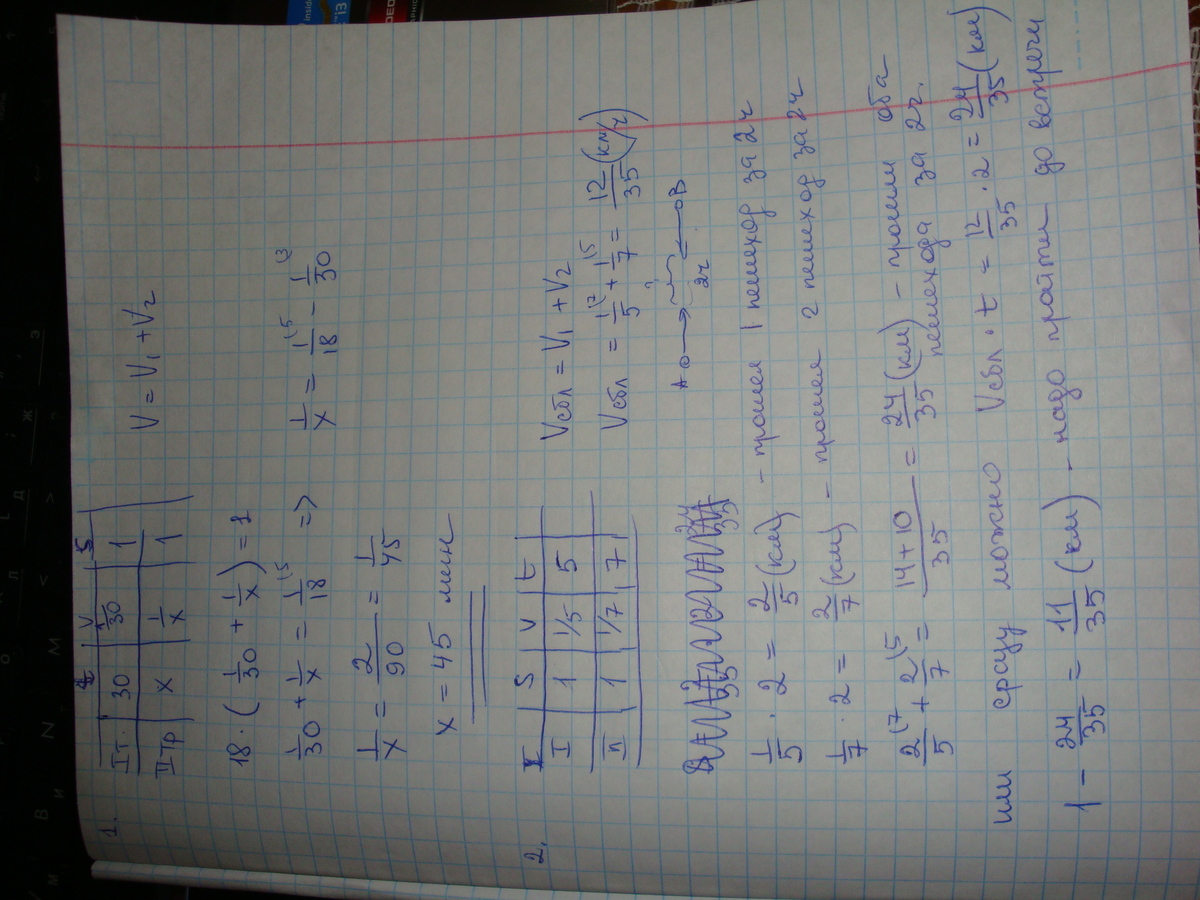 1.
t V S
I т. 30 1/30 1
II тр x 1/x 1
V = V₁ + V₂
18 · (1/30 + 1/x) = 1
1/30 + 1/x = 1/18 => 1/x = 1/18 - 1/30
1/x = 2/90 = 1/45
x = 45 мин
2.
S V t
I 1 1/5 5
II п 1 1/7 7
Vсбл = V₁ + V₂
Vсбл = 1/5 + 1/7 = 12/35 (км/ч)
A B
2ч
1/5 · 2 = 2/5 (км) - прошел 1 пешеход за 2ч
1/7 · 2 = 2/7 (км) - прошел 2 пешеход за 2ч
2/5 + 2/7 = (14+10)/35 = 24/35 (км) - прошли оба
пешехода за 2ч.
или сразу можно Vсбл · t = 12/35 · 2 = 24/35 (км)
1 - 24/35 = 11/35 (км) - надо пройти до встречи